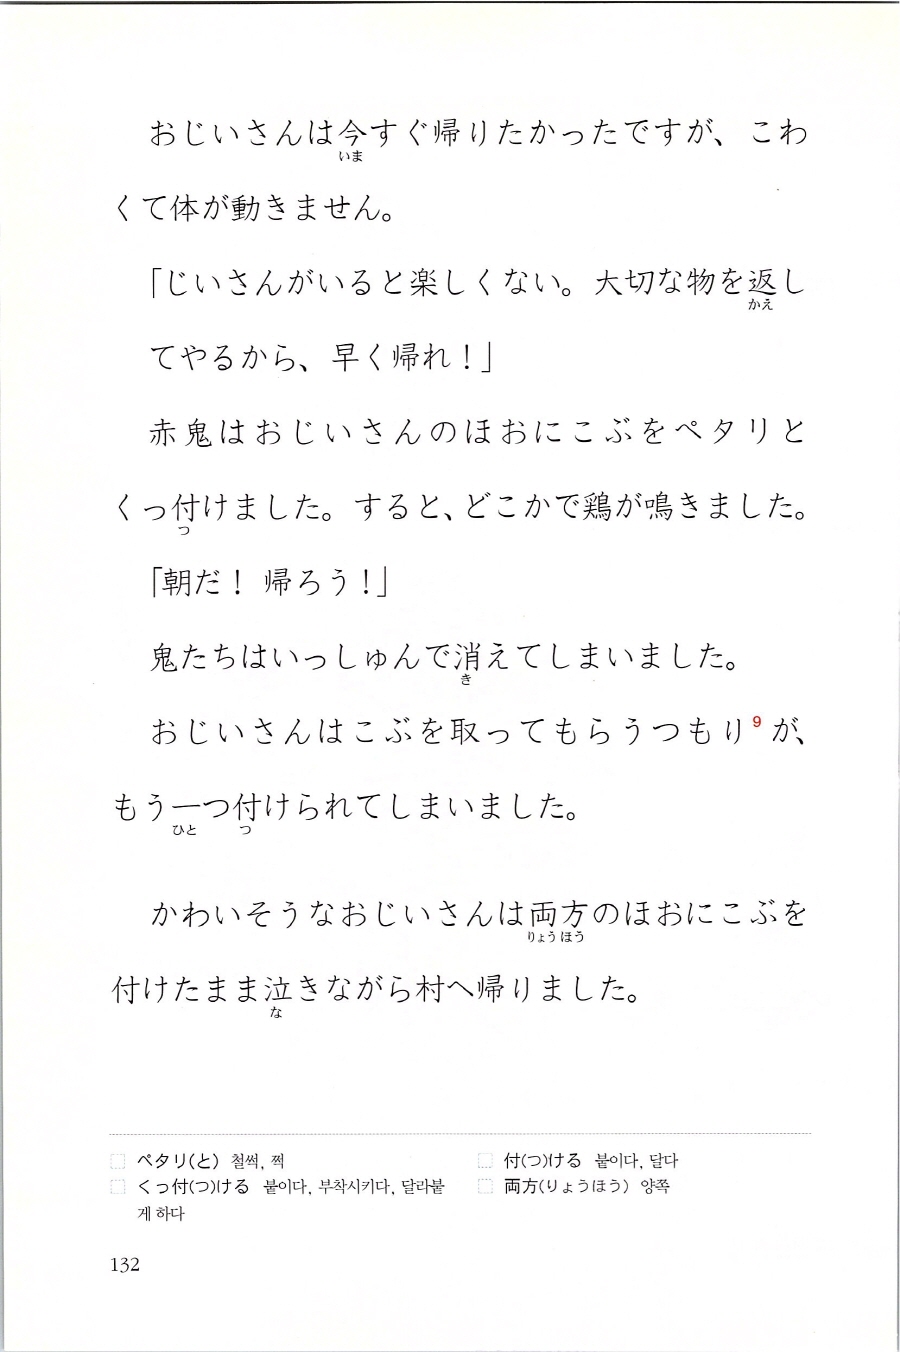 おじいさんは今すぐ帰りたかったですが、こわ
いま
くて体が動きません。
「じいさんがいると楽しくない。大切な物を返し
かえ
てやるから、早く帰れ！」
赤鬼はおじいさんのほおにこぶをペタリと
くっ付けました。すると、どこかで鶏が鳴きました。
つ
「朝だ！ 帰ろう！」
鬼たちはいっしゅんで消えてしまいました。
き
おじいさんはこぶを取ってもらうつもり9が、
もう一つ付けられてしまいました。
ひと つ
かわいそうなおじいさんは両方のほおにこぶを
りょうほう
付けたまま泣きながら村へ帰りました。
な
ペタリ(と) 철썩, 쩍
くっ付(つ)ける 붙이다, 부착시키다, 달라붙
게 하다
付(つ)ける 붙이다, 달다
両方(りょうほう) 양쪽
132